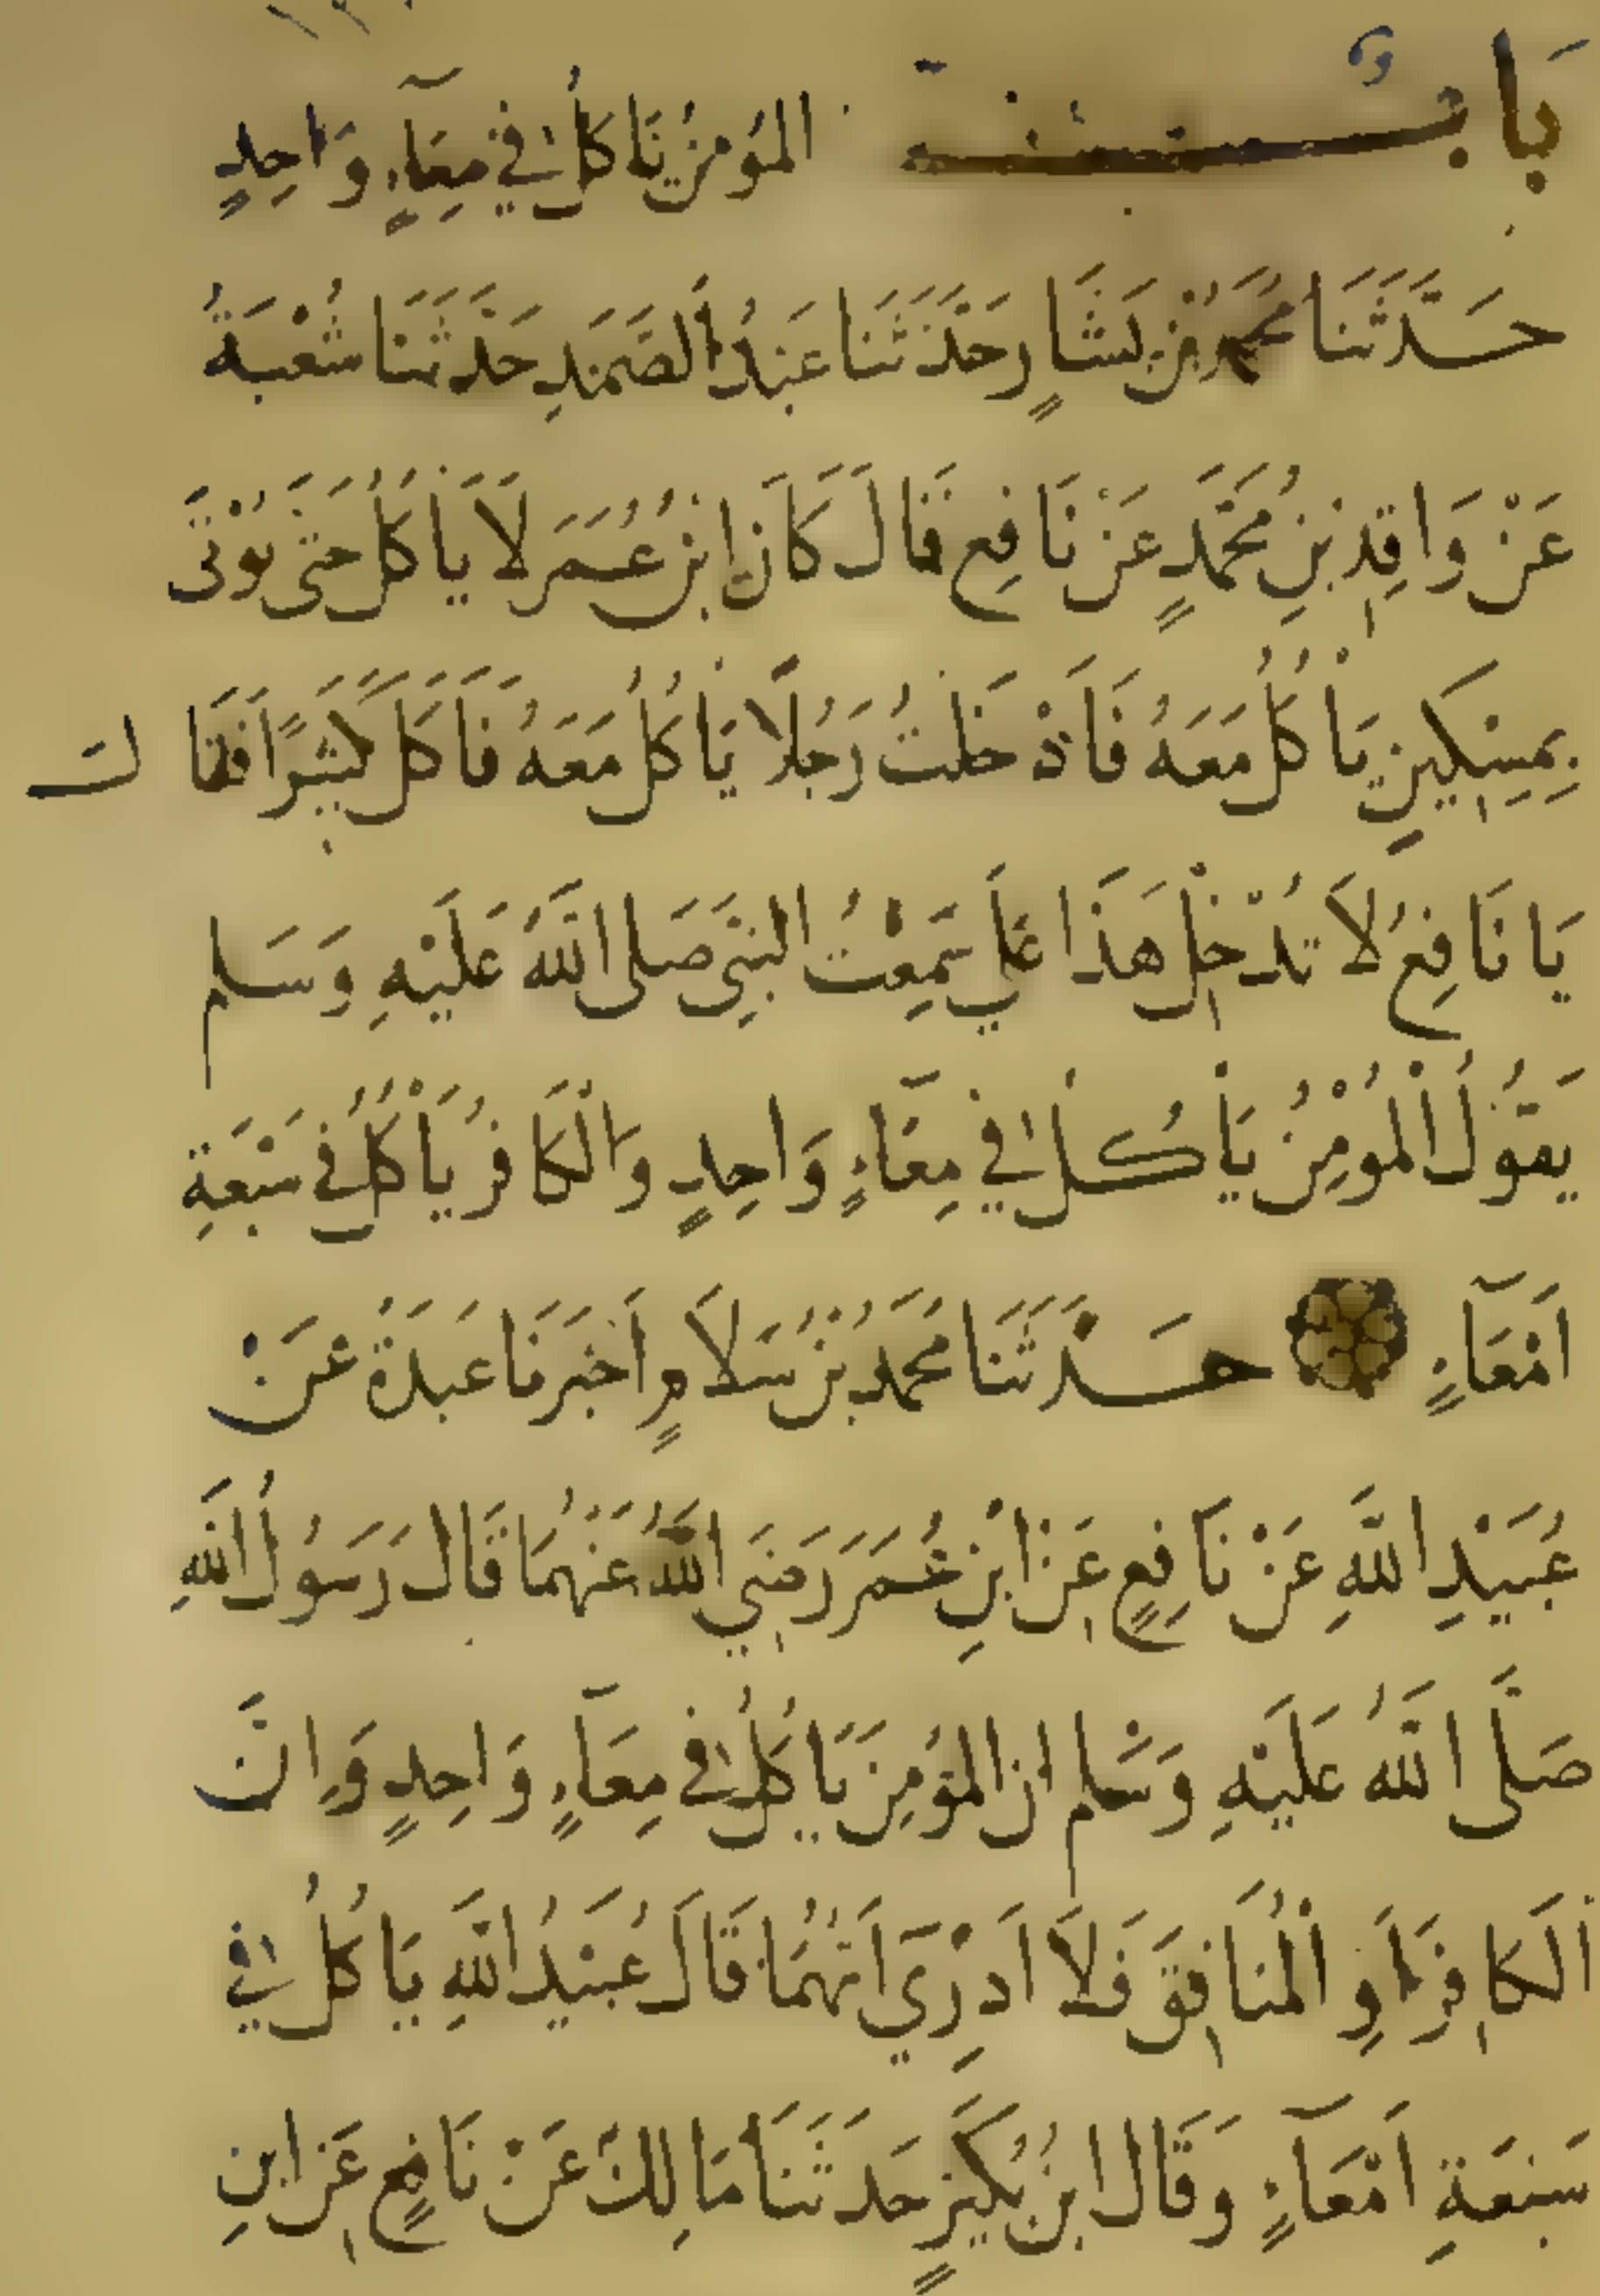 بَابٌ المؤمِنُ يَاكُلُ فِي مِعَآءٍ وَاحِدٍ
حَدَّثَنَا مُحَمَّدُ بْنُ بَشَّارٍ حَدَّثَنَا عَبْدُ الصَّمَدِ حَدَّثَنَا شُعْبَةُ
عَنْ وَاقِدِ بْنِ مُحَمَّدٍ عَنْ نَافِعٍ قَالَ كَانَ ابْنُ عُمَرَ لَا يَاكُلُ حَتَّى يُوْتَى
بِمِسْكِينٍ يَاْكُلُ مَعَهُ فَاَدْخَلْتُ رَجُلًا يَاكُلُ مَعَهُ فَاَكَلَ كَثِيرًا فَقَالَ
يَا نَافِعُ لَا تُدْخِلْ هَذَا عَلَيَّ سَمِعْتُ النَّبِيَّ صَلى اللَّهُ عَلَيْهِ وَسَلم
يَقُولُ الْمُوْمِنُ يَأْكُلُ فِي مِعَآءٍ وَاحِدٍ وَالْكَافِرُ يَاْكُلُ فِي سَبْعَةِ
اَمْعَآءٍ حَدَّثَنَا مُحَمَّدُ بْنُ سَلَامٍ اَخْبَرَنَا عَبْدَةُ عَنْ
عُبَيْدِ اللَّهِ عَنْ نَافِعٍ عَنِ ابْنِ عُمَرَ رَضِيَ اللَّهُ عَنْهُمَا قَالَ رَسُولُ اللَّهِ
صَلَّى اللَّهُ عَلَيْهِ وَسَلم ان المؤمِنَ يَاكُلُ فِي مِعَآءٍ وَاحِدٍ وَاِنَّ
الْكَافِرَ اَوِ الْمُنَافِقَ فَلَا اَدْرِي اَيَّهُمَا قَالَ عُبَيْدُ اللَّهِ يَاكُلُ فِي
سَبْعَةِ اَمْعَآءٍ وَقَالَ ابْنُ بُكَيْرٍ حَدَثَنَا مَالِكٌ عَنْ نَافِعٍ عَنِ ابْنِ